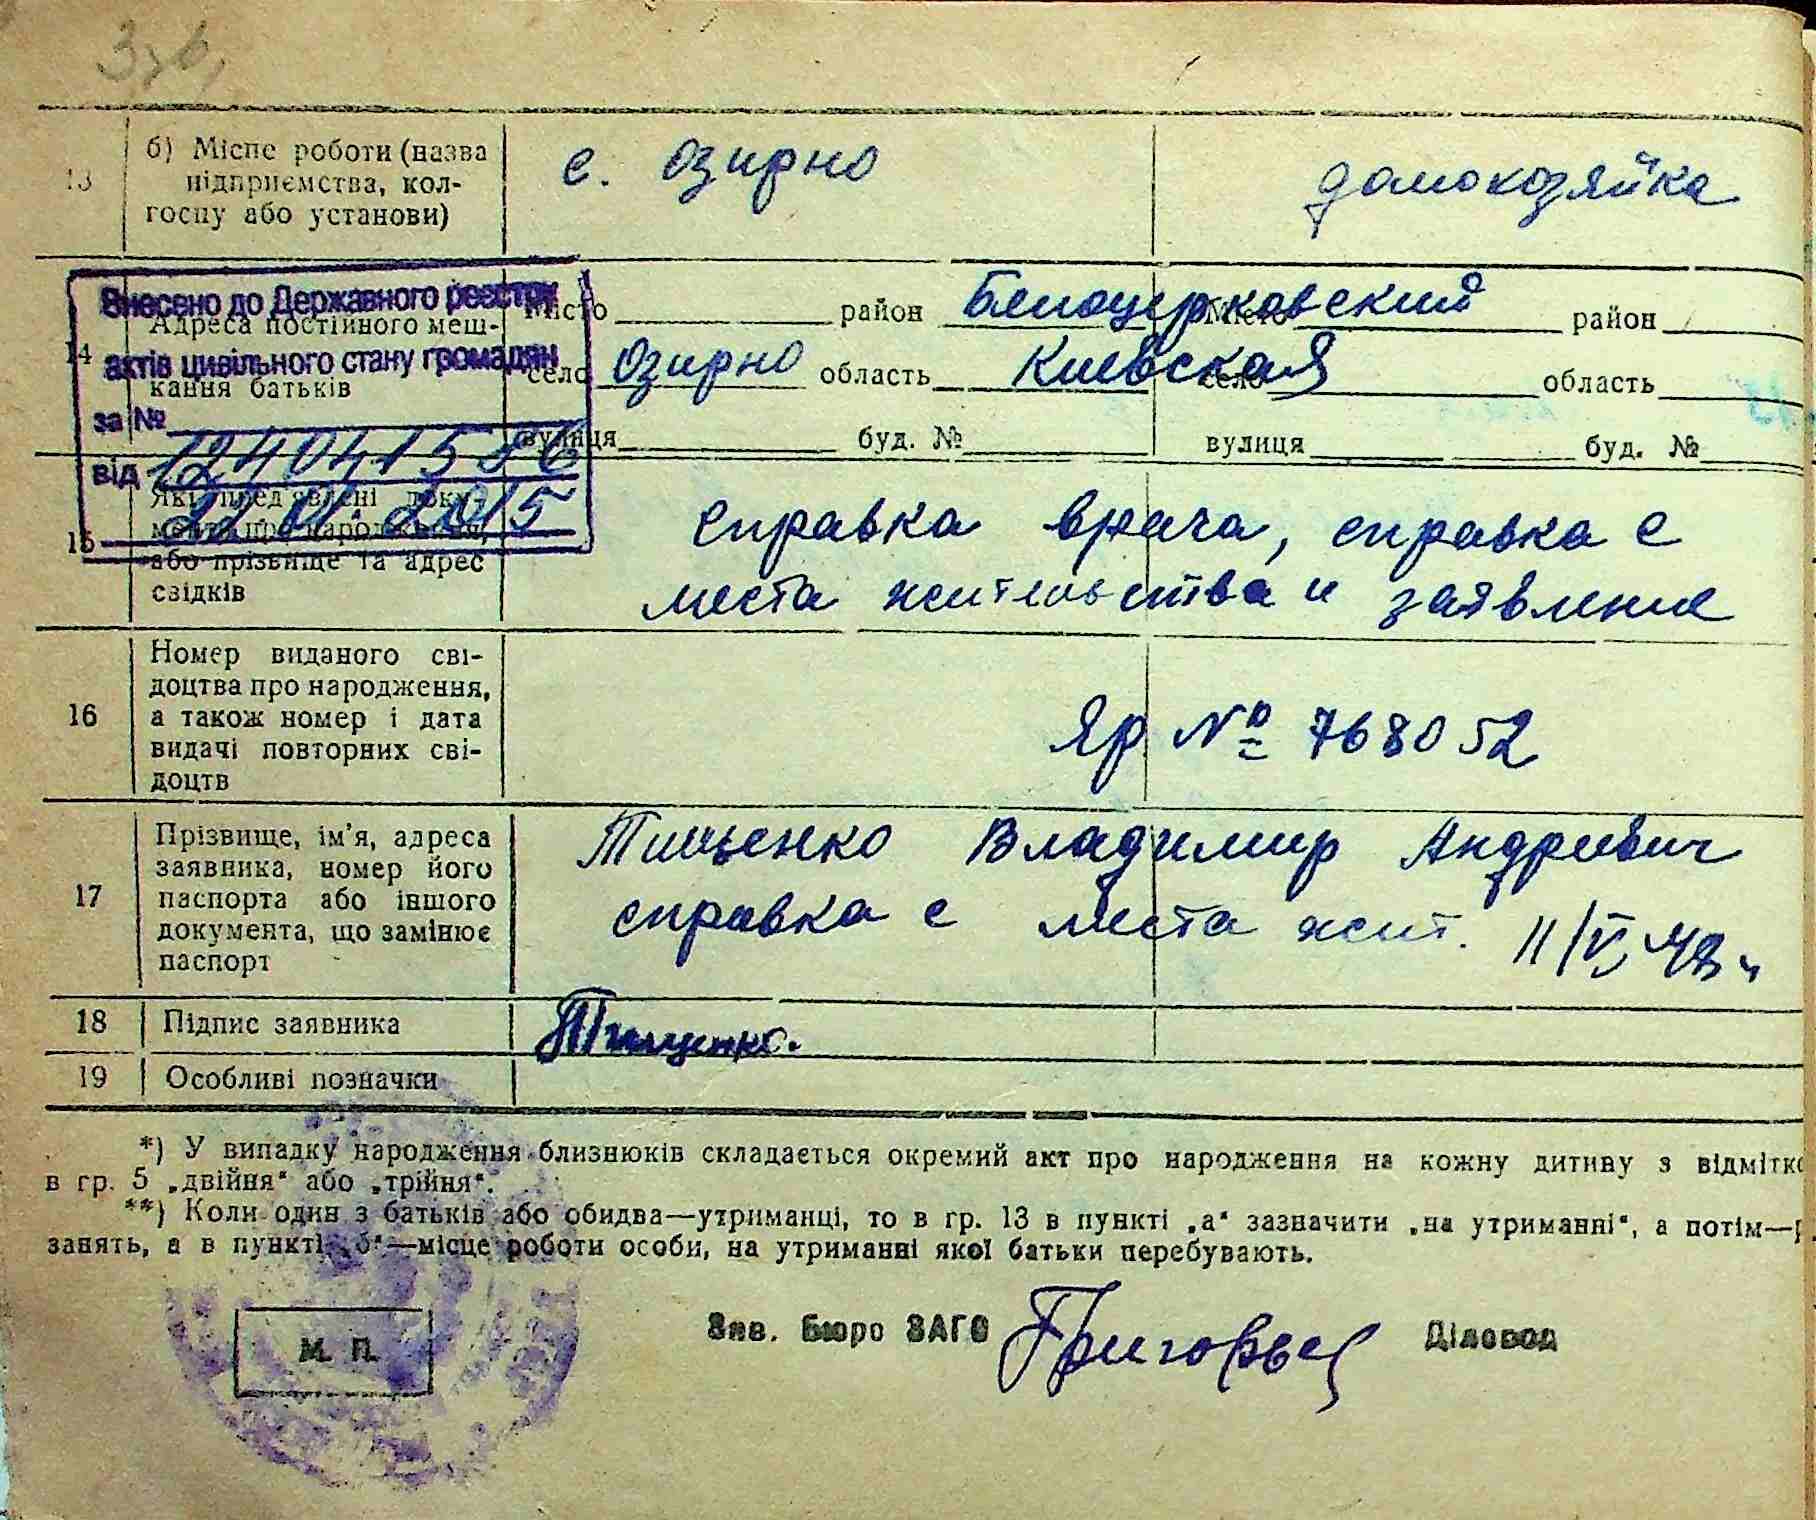 13
б) Місце роботи (назва
підприємства, кол-
госпу або установи)
с. Озирно
домохозяйка
Внесено до Державного реєстру
актів цивільного стану громадян
за №
12404158
від
22.01.2015
14
Адреса постійного меш-
кання батьків
Місто район Белоцерковский
село Озирно область Киевская
вулиця буд. №
Місто район
село область
вулиця буд. №
15
Які пред'явлені доку-
менти про народження,
або прізвище та адрес
свідків
справка врача, справка с
места жительства и заявление
16
Номер виданого сві-
доцтва про народження,
а також номер і дата
видачі повторних сві-
доцтв
ЯР № 768052
17
Прізвище, ім'я, адреса
заявника, номер його
паспорта або іншого
документа, що замінює
паспорт
Тищенко Владимир Андриевич
справка с места жит. 11/V 48
18
Підпис заявника
Тищенко.
19
Особливі позначки
*) У випадку народження близнюків складається окремий акт про народження на кожну дитину з відмітко
в гр. 5 „двійня“ або „трійня“.
**) Коли один з батьків або обидва—утриманці, то в гр. 13 в пункті „а“ зазначити „на утриманні“, а потім—р
занять, а в пункті „б“—місце роботи особи, на утриманні якої батьки перебувають.
М. П.
Зав. Бюро ЗАГС Григорьев Діловод